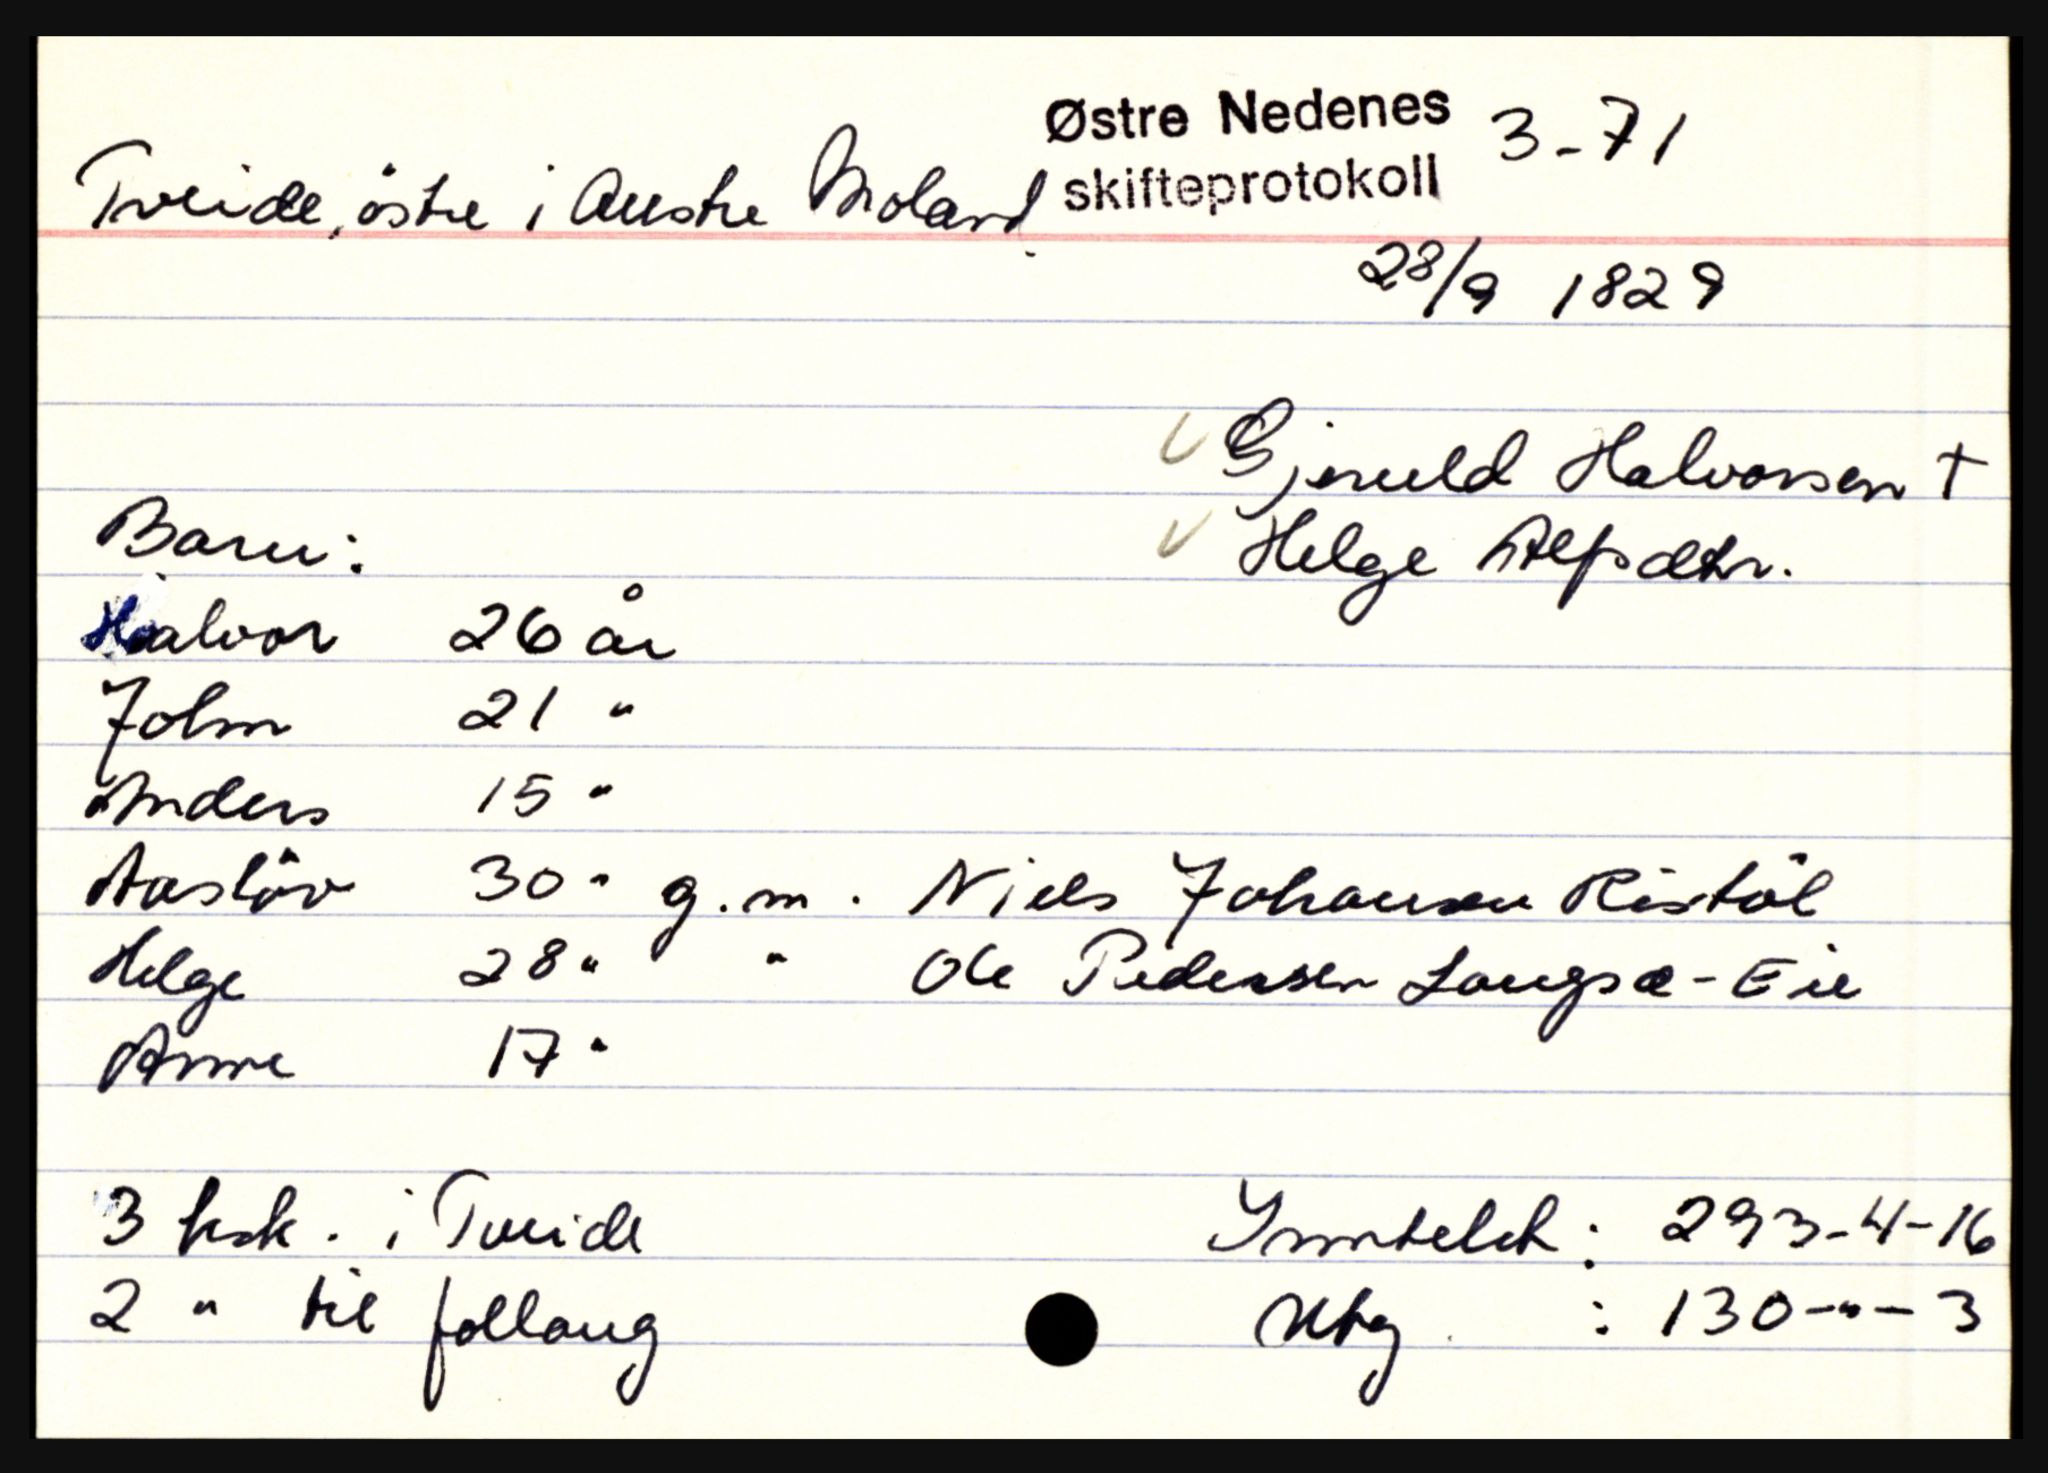 Østre Nedenes 3-71
skifteprotokoll
Tveide, östre i Austre Moland
28/9 1829
Gjeruld Halvorsen †
Helge Alfsdtr.
Barn:
Halvor 26 år
John 21 "
Anders 15 "
Aaslöv 30 " g.m. Niels Johansen Ristöl
Helge 28 " " Ole Pedersen Langsæ-Eie
Anne 17 "
3 hsk. i Tveide Inntekt: 293-4-16
2 " til follaug Utg : 130-"-3